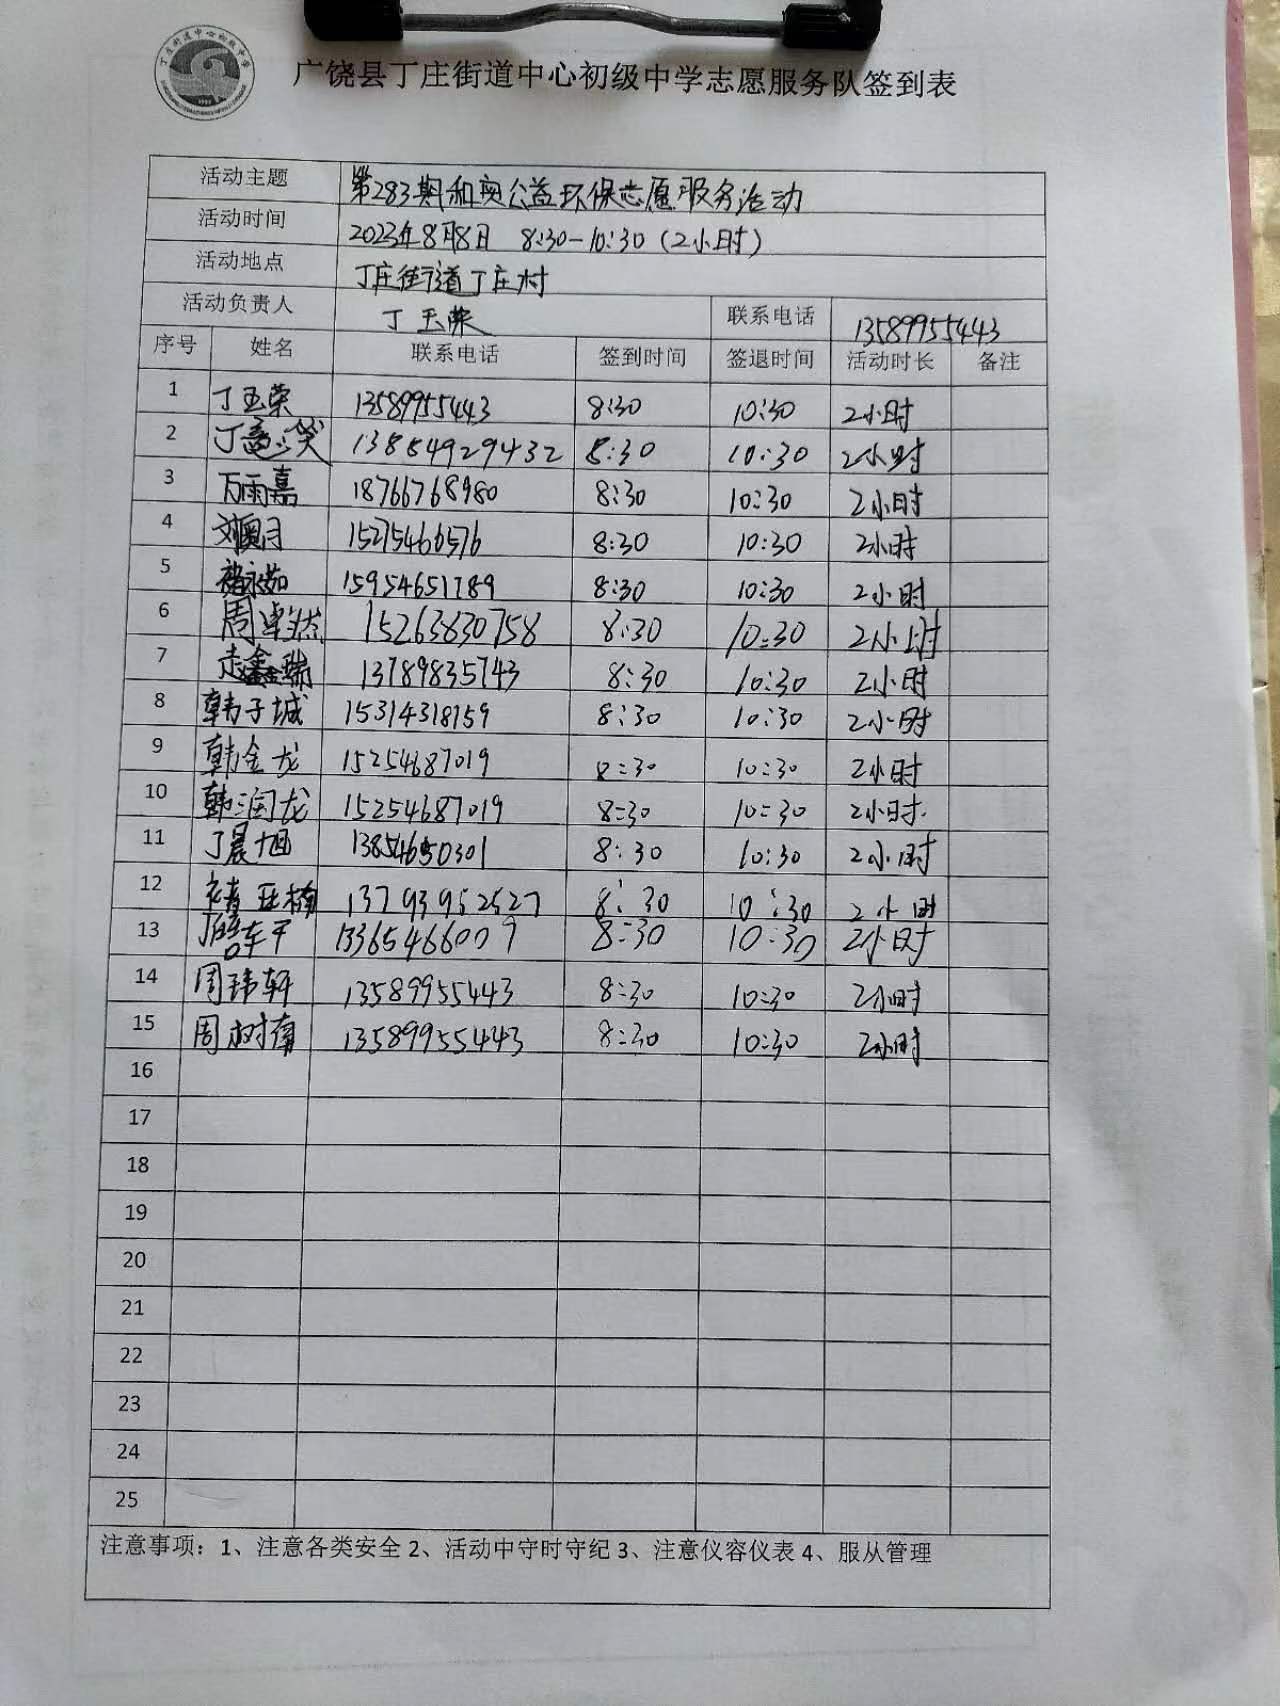 丁庄街道中心初级中学
广饶县丁庄街道中心初级中学志愿服务队签到表
活动主题 第283期和奥公益环保志愿服务活动
活动时间 2023年8月8日 8:30-10:30(2小时)
活动地点 丁庄街道丁庄村
活动负责人 丁玉荣 联系电话 13589955443
序号 姓名 联系电话 签到时间 签退时间 活动时长 备注
1 丁玉荣 13589955443 8:30 10:30 2小时
2 丁意笑 13854929432 8:30 10:30 2小时
3 万雨嘉 18766768980 8:30 10:30 2小时
4 刘奥月 15275466576 8:30 10:30 2小时
5 褚永茹 15954651789 8:30 10:30 2小时
6 周卓然 15263830758 8:30 10:30 2小时
7 志鑫瑞 13789835743 8:30 10:30 2小时
8 韩子城 15314318159 8:30 10:30 2小时
9 韩金龙 15254687019 8:30 10:30 2小时
10 韩润龙 15254687019 8:30 10:30 2小时
11 丁晨旭 13854650301 8:30 10:30 2小时
12 13793952527 8:30 10:30 2小时
13 13365466009 8:30 10:30 2小时
14 周玮轩 13589955443 8:30 10:30 2小时
15 周树楠 13589955443 8:30 10:30 2小时
16
17
18
19
20
21
22
23
24
25
注意事项：1、注意各类安全 2、活动中守时守纪 3、注意仪容仪表 4、服从管理